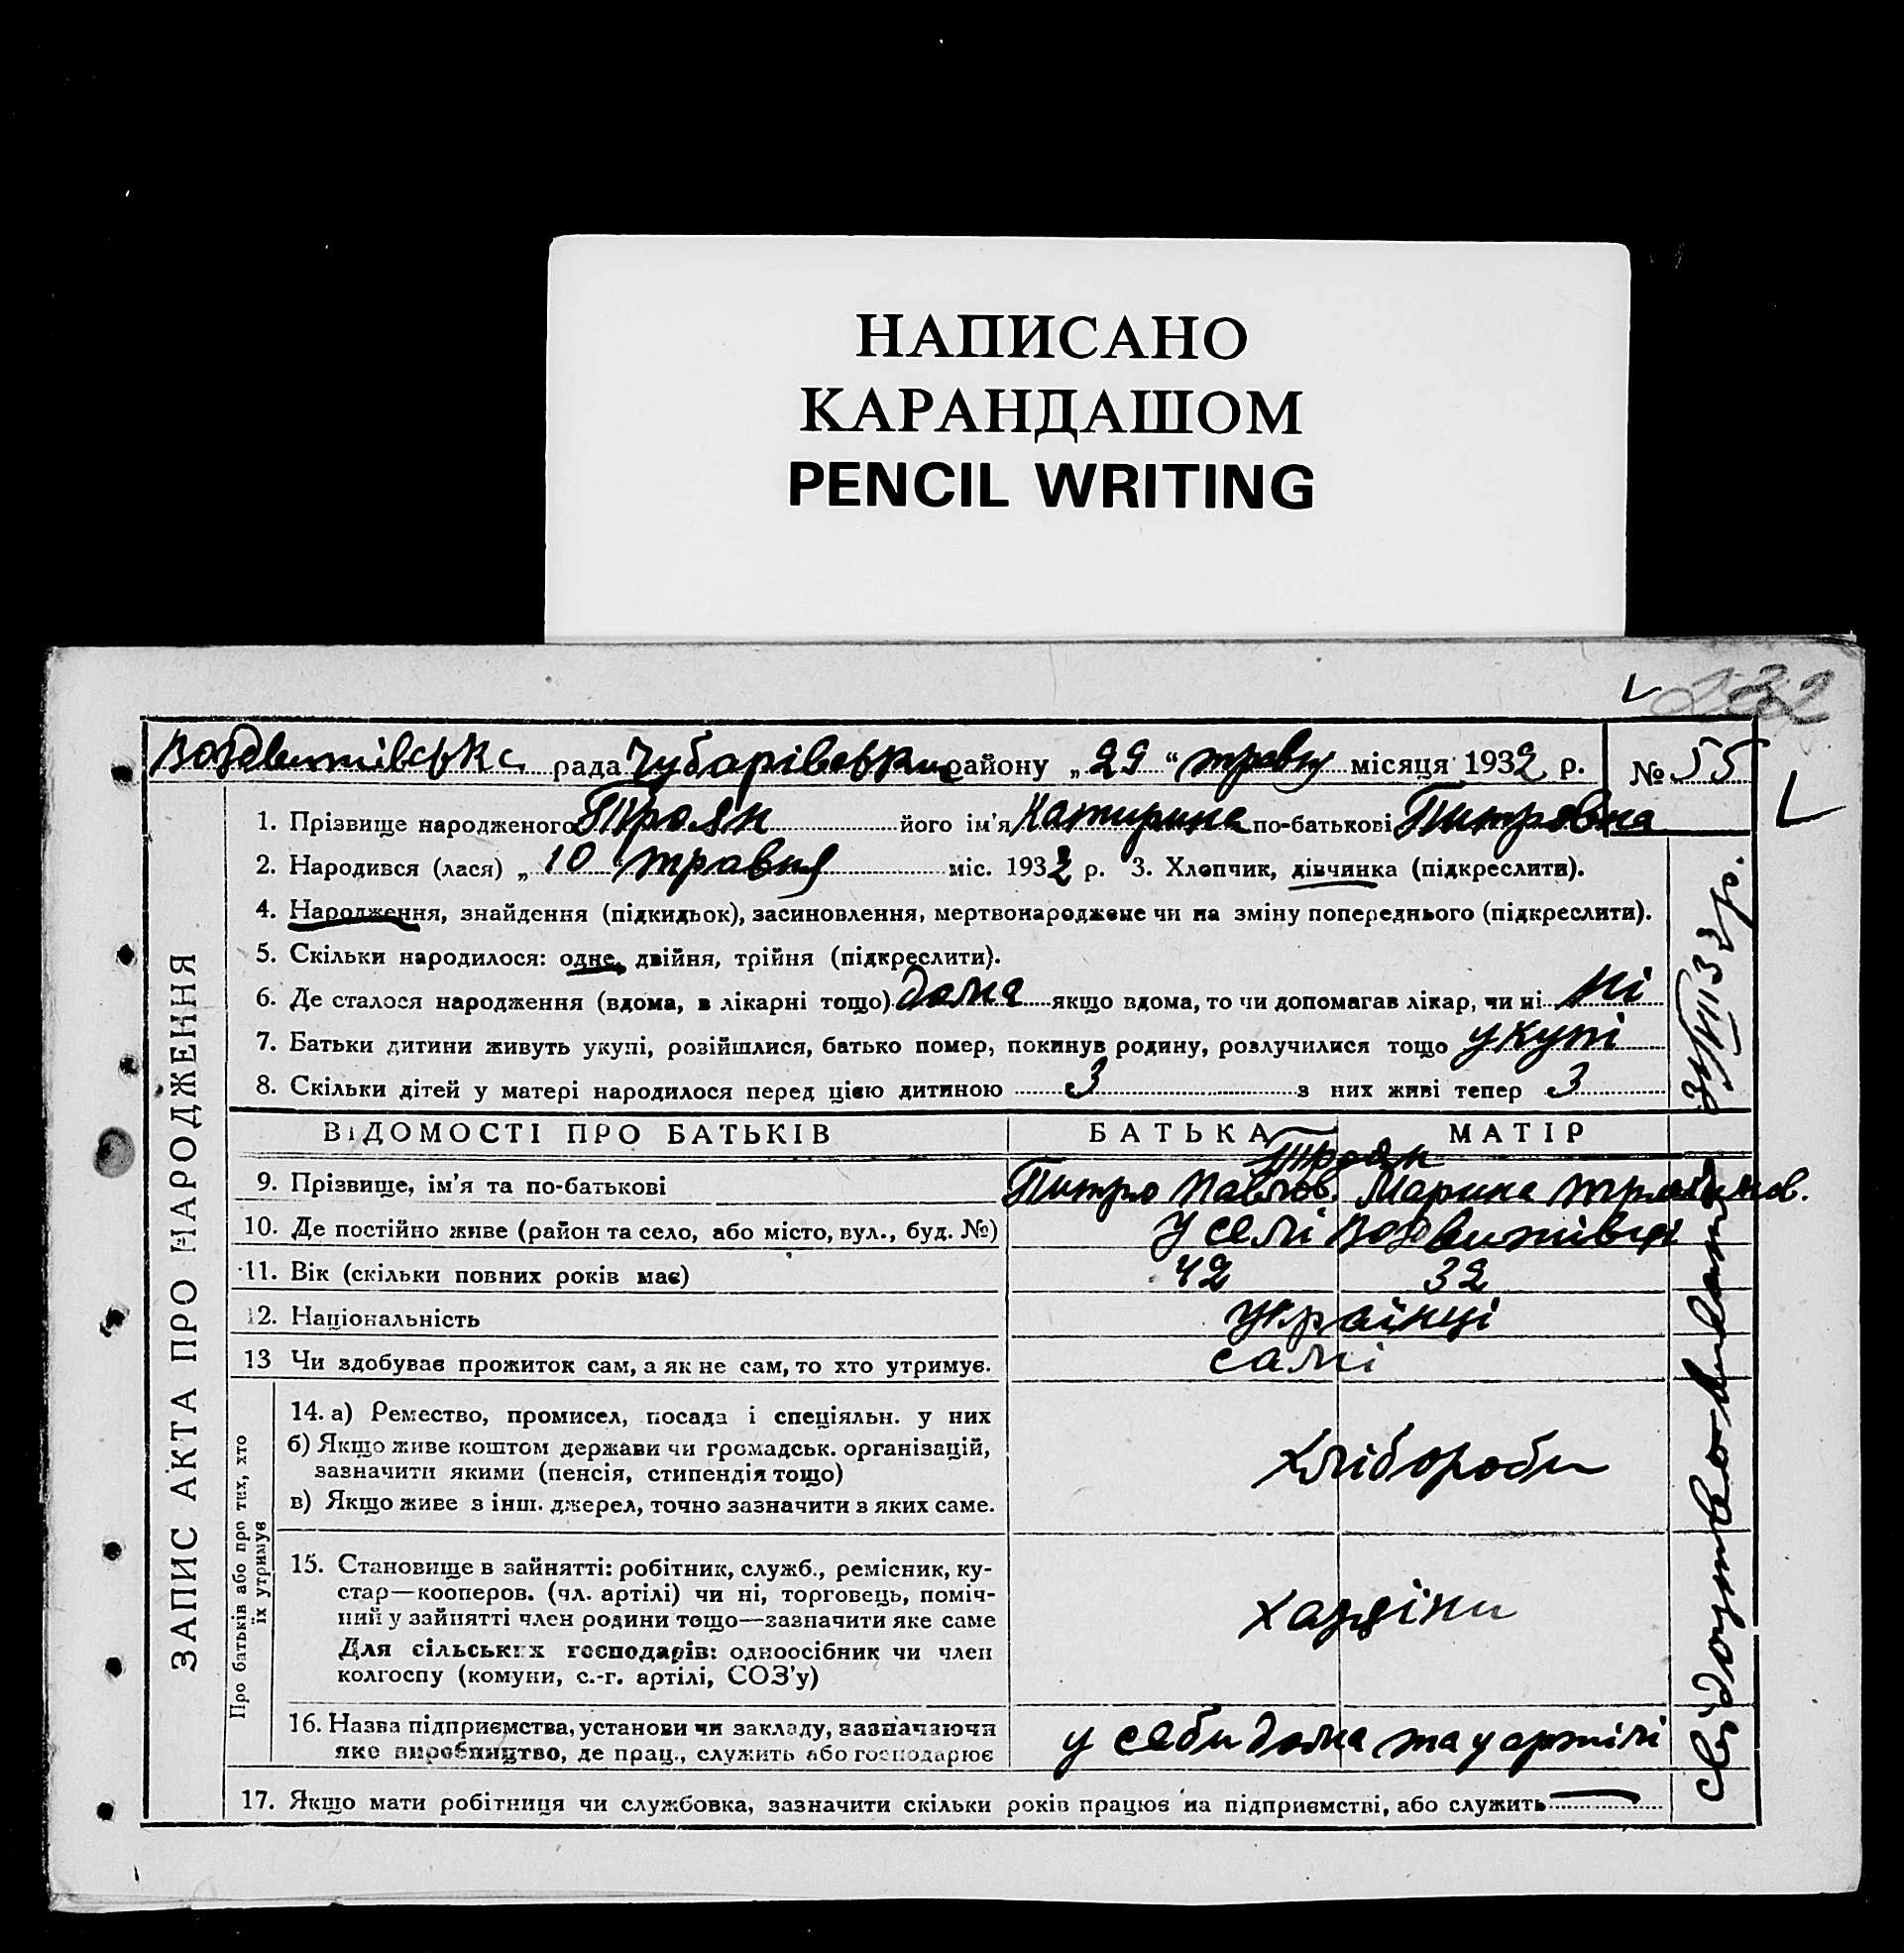 НАПИСАНО
КАРАНДАШОМ
PENCIL WRITING
232
Воздвижівська рада Чубарівськи району „29“ травня місяця 1932 р. № 55
1. Прізвище народженого Троян його ім'я Катирина по-батькові Питровна
2. Народився (лася) „10 травня міс. 1932 р. 3. Хлопчик, дівчинка (підкреслити).
4. Народження, знайдення (підкидьок), засиновлення, мертвонароджене чи на зміну попереднього (підкреслити).
5. Скільки народилося: одне, двійня, трійня (підкреслити).
6. Де сталося народження (вдома, в лікарні тощо) дома якщо вдома, то чи допомагав лікар, чи ні ні
7. Батьки дитини живуть укупі, розійшлися, батько помер, покинув родину, розлучилися тощо укупі
8. Скільки дітей у матері народилося перед цією дитиною 3 з них живі тепер 3
ВІДОМОСТІ ПРО БАТЬКІВ БАТЬКА МАТІР
Троян
9. Прізвище, ім'я та по-батькові Питро Павлов. Марина
10. Де постійно живе (район та село, або місто, вул., буд. №) У селі Воздвижівці
11. Вік (скільки повних років має) 42 32
12. Національність Українці
13 Чи здобуває прожиток сам, а як не сам, то хто утримує. самі
14. а) Ремество, промисел, посада і спеціяльн. у них
б) Якщо живе коштом держави чи громадськ. організацій,
зазначити якими (пенсія, стипендія тощо)
в) Якщо живе з інш. джерел, точно зазначити з яких саме.
хлібороби
15. Становище в зайнятті: робітник, служб., ремісник, ку-
стар—кооперов. (чл. артілі) чи ні, торговець, поміч-
ний у зайнятті член родини тощо—зазначити яке саме
Для сільських господарів: одноосібник чи член
колгоспу (комуни, с.-г. артілі, СОЗ'у)
хазяіни
16. Назва підприємства, установи чи закладу, зазначаючи
яке виробництво, де прац., служить або господарює
у себи дома та у артілі
17. Якщо мати робітниця чи службовка, зазначити скільки років працює на підприємстві, або служить
ЗАПИС АКТА ПРО НАРОДЖЕННЯ
Про батьків або про тих, хто
їх утримує